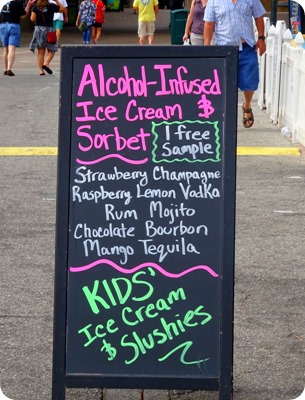 Alcohol-Infused
Ice Cream &
Sorbet
1 free
Sample
Strawberry Champagne
Raspberry Lemon Vodka
Rum Mojito
Chocolate Bourbon
Mango Tequila
KIDS'
Ice Cream
& Slushies